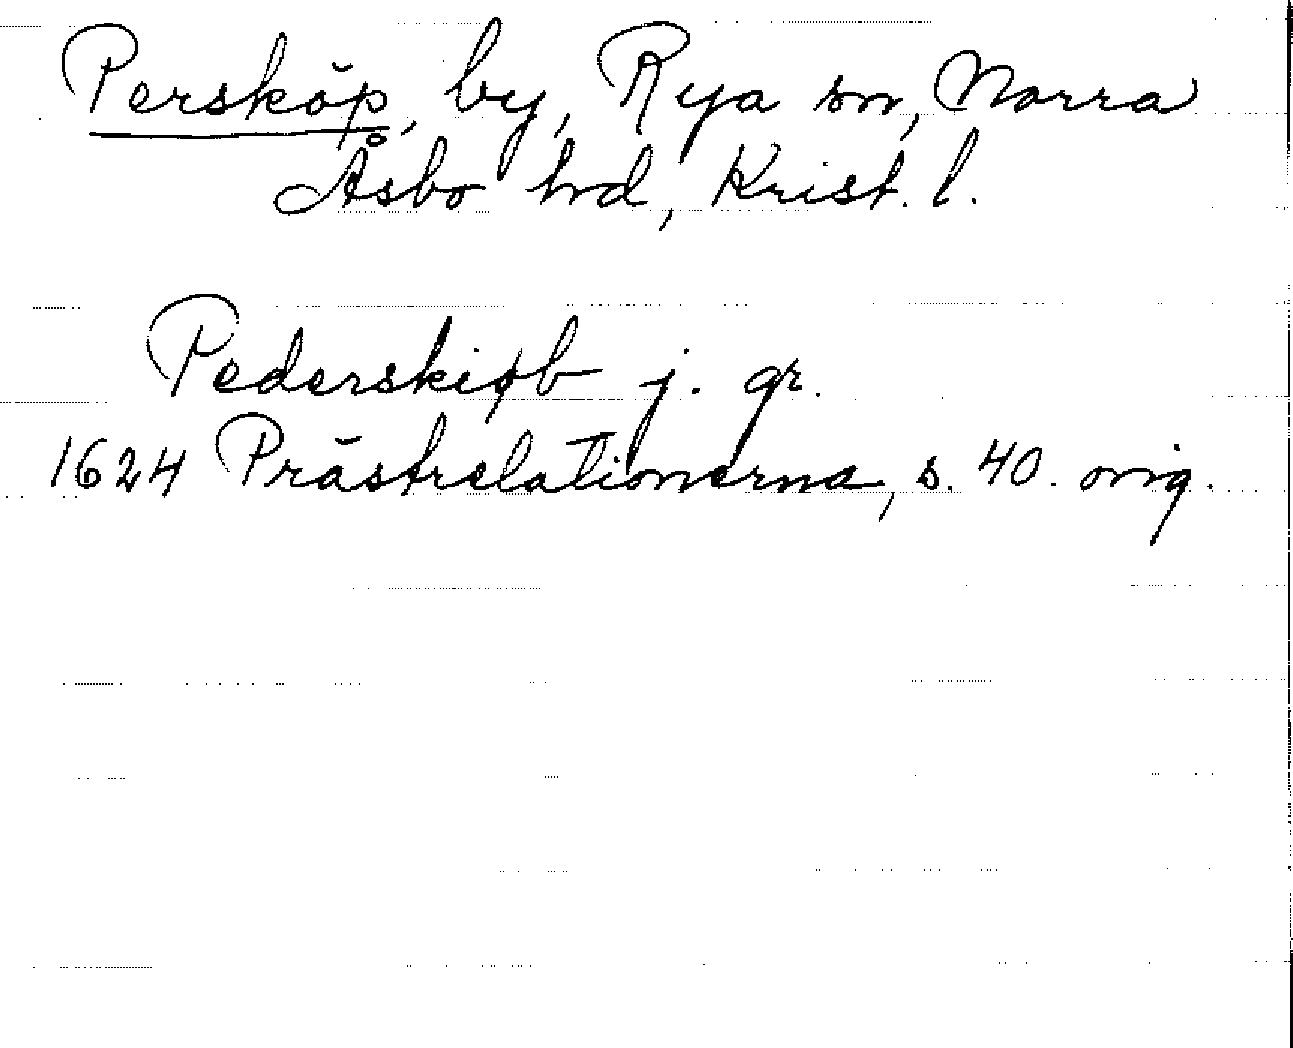 Persköp, by, Rya sn, Norra
Åsbo hrd, Krist. l.
Pederskiøb j. gr.
1624 Prästrelationerna, s. 40. orig.